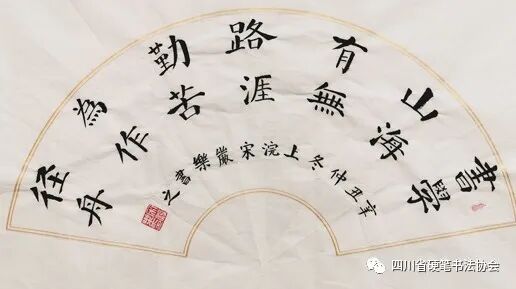 書山有路勤為徑
學海無涯苦作舟
辛丑仲冬上浣宋樂書之
四川省硬笔书法协会